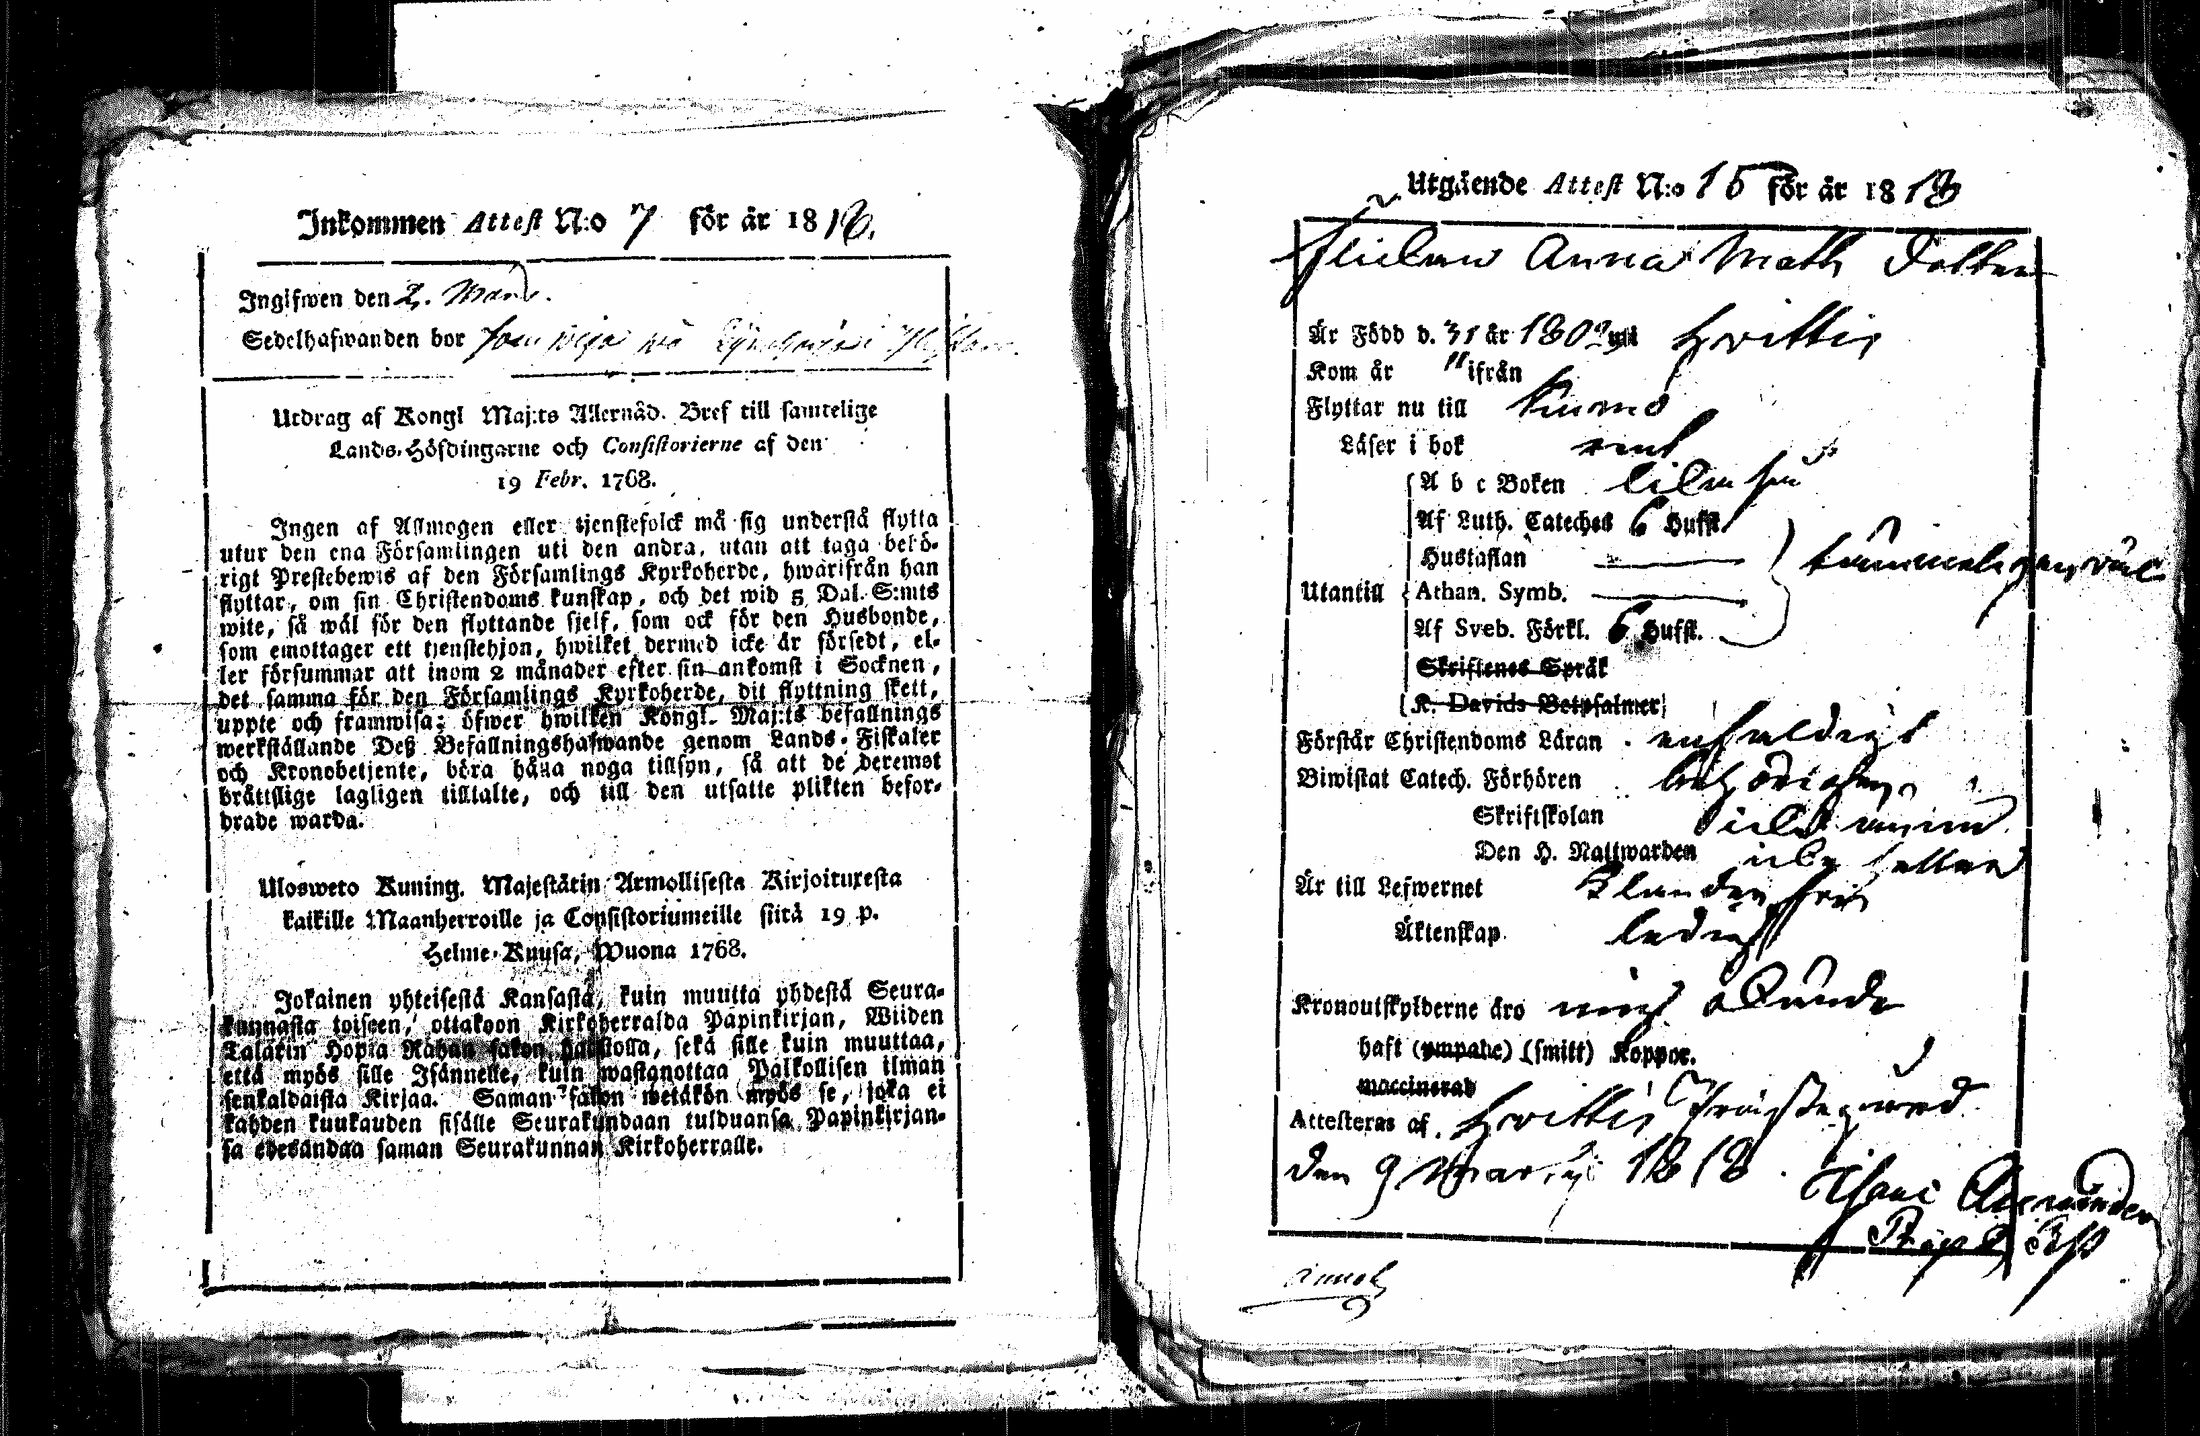 Inkommen Attest N:o 7 för år 1818.
Ingifwen den 2. Mars.
Sedelhafwanden bor
Utdrag af Kongl Maj:ts Allernåd. Bref till samtelige
Lands-Höfdingarne och Consistorierne af den
19 Febr. 1768.
Ingen af Allmogen eller tjenstefolck må sig understå flytta
utur den ena Församlingen uti den andra, utan att taga behö-
rigt Prestebewis af den Församlings Kyrkoherde, hwarifrån han
flyttar, om sin Christendoms kunskap, och det wid 5 Dal. S:mts
wite, så wäl för den flyttande sjelf, som ock för den Husbonde,
som emottager ett tjenstehjon, hwilket dermed icke är försedt, el-
ler försummar att inom 2 månader efter sin ankomst i Socknen,
det samma för den Församlings Kyrkoherde, dit flyttning skett,
uppte och framwisa; öfwer hwilken Kongl. Maj:ts befallnings
werkställande Deß Befallningshafwande genom Lands-Fiskaler
och Kronobetjente, böra hålla noga tillsyn, så att de deremot
bråttslige lagligen tilltalte, och till den utsatte plikten befor-
drade warda.
Ulosweto Kuning. Majestätin Armollisesta Kirjoituxesta
kaikille Maanherroille ja Consistoriumeille siitä 19 p.
Helme-Kuusa, Wuona 1768.
Jokainen yhteisestä Kansasta, kuin muutta yhdestä Seura-
kunnasta toiseen, ottakoon Kirkoherralda Papinkirjan, Wiiden
Talarin Hopia Rahan sakon haastolla, sekä sille kuin muuttaa,
että myös sille Isännelle, kuin wastanottaa Palkollisen ilman
senkaldaista Kirjaa. Saman sakon wetäkön myös se, joka ei
kahden kuukauden sisälle Seurakundaan tulduansa Papinkirjan-
sa edesandaa saman Seurakunnan Kirkoherralle.
Utgående Attest N:o 15 för år 1818
Anna Math Dotter
Är Född d. 31 år 1802 uti Hvittis
Kom år " ifrån
Flyttar nu till Kiumo
Läser i bok rent
A b c Boken
Af Luth. Cateches 6 Hufst.
Hustaflan
Utantill Athan. Symb.
Af Sveb. Förkl. 6 Hufst.
Skriftenes Språk
K. Davids Betpsalmer
Förstår Christendoms Läran enfaldigt
Biwistat Catech. Förhören behörigen
Skriftskolan
Den H. Nattwarden icke heller
Är till Lefwernet Klanderfri
Äktenskap ledig
Kronoutskylderne äro
haft (ympade) (smitt) Koppor.
waccinerad
Attesteras af Hvittis Prästegård
den 9 Martji 1818.